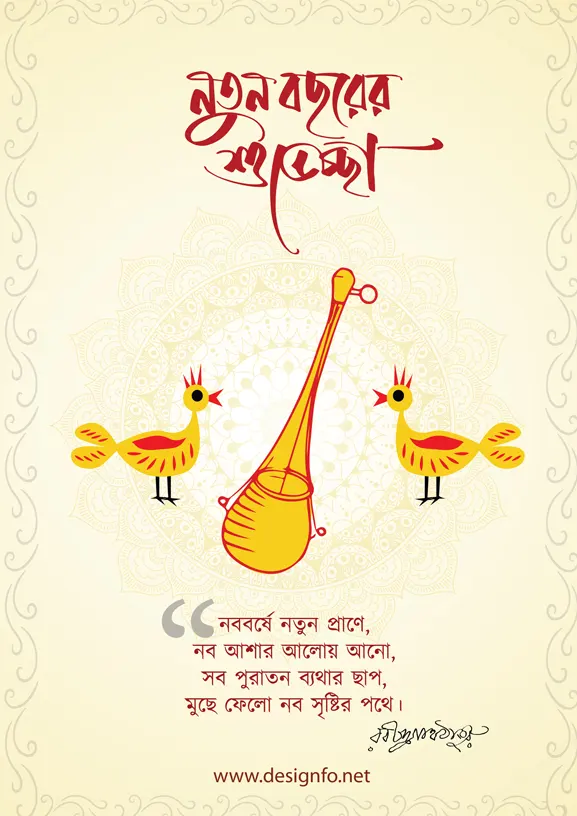 নতুন বছরের
শুভেচ্ছা
“
নববর্ষে নতুন প্রাণে,
নব আশার আলোয় আনো,
সব পুরাতন ব্যথার ছাপ,
মুছে ফেলো নব সৃষ্টির পথে।
রবীন্দ্রনাথ ঠাকুর
www.designfo.net